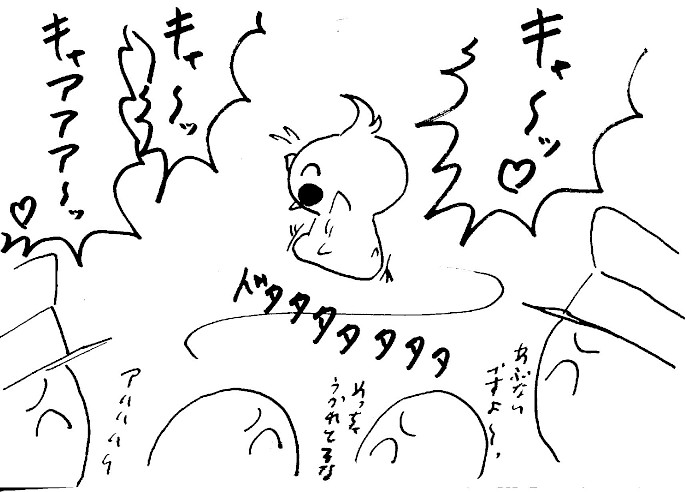 キャ〜ッ♡
キャ〜ッ
キャアアア〜ッ♡
ドタタタタタタタ
あぶない
ですよ〜、
めっちゃ
うかれてるな
アハハハハ